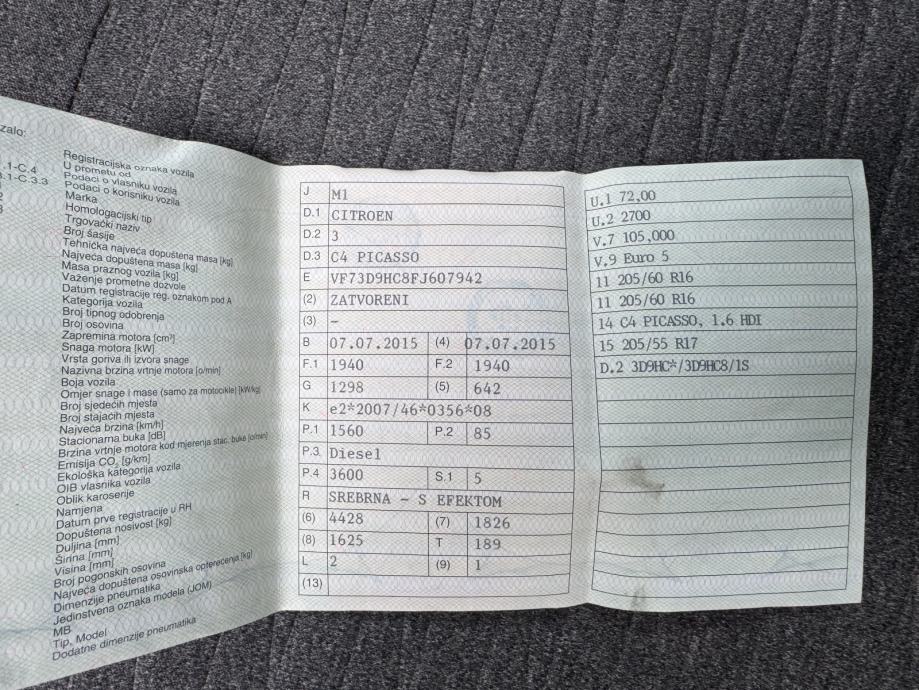 zalo:
.1-C.4
3.1-C.3.3
Registracijska oznaka vozila
U prometu od
Podaci o vlasniku vozila
Podaci o korisniku vozila
Marka
Homologacijski tip
Trgovački naziv
Broj šasije
Tehnička najveća dopuštena masa [kg]
Najveća dopuštena masa [kg]
Masa praznog vozila [kg]
Važenje prometne dozvole
Datum registracije reg. oznakom pod A
Kategorija vozila
Broj tipnog odobrenja
Broj osovina
Zapremina motora [cm³]
Snaga motora [kW]
Vrsta goriva ili izvora snage
Nazivna brzina vrtnje motora [o/min]
Boja vozila
Omjer snage i mase (samo za motocikle) [kW/kg]
Broj sjedećih mjesta
Broj stajaćih mjesta
Najveća brzina [km/h]
Stacionarna buka [dB]
Brzina vrtnje motora kod mjerenja stac. buke [o/min]
Emisija CO₂ [g/km]
Ekološka kategorija vozila
OIB vlasnika vozila
Oblik karoserije
Namjena
Datum prve registracije u RH
Dopuštena nosivost [kg]
Duljina [mm]
Širina [mm]
Visina [mm]
Broj pogonskih osovina
Najveća dopuštena osovinska opterećenja [kg]
Dimenzije pneumatika
Jedinstvena oznaka modela (JOM)
MB
Tip, Model
Dodatne dimenzije pneumatika
J M1
D.1 CITROEN
D.2 3
D.3 C4 PICASSO
E VF73D9HC8FJ607942
(2) ZATVORENI
(3) -
B 07.07.2015 (4) 07.07.2015
F.1 1940 F.2 1940
G 1298 (5) 642
K e2*2007/46*0356*08
P.1 1560 P.2 85
P.3 Diesel
P.4 3600 S.1 5
R SREBRNA - S EFEKTOM
(6) 4428 (7) 1826
(8) 1625 T 189
L 2 (9) 1
(13)
U.1 72,00
U.2 2700
V.7 105,000
V.9 Euro 5
11 205/60 R16
11 205/60 R16
14 C4 PICASSO, 1.6 HDI
15 205/55 R17
D.2 3D9HC*/3D9HC8/1S